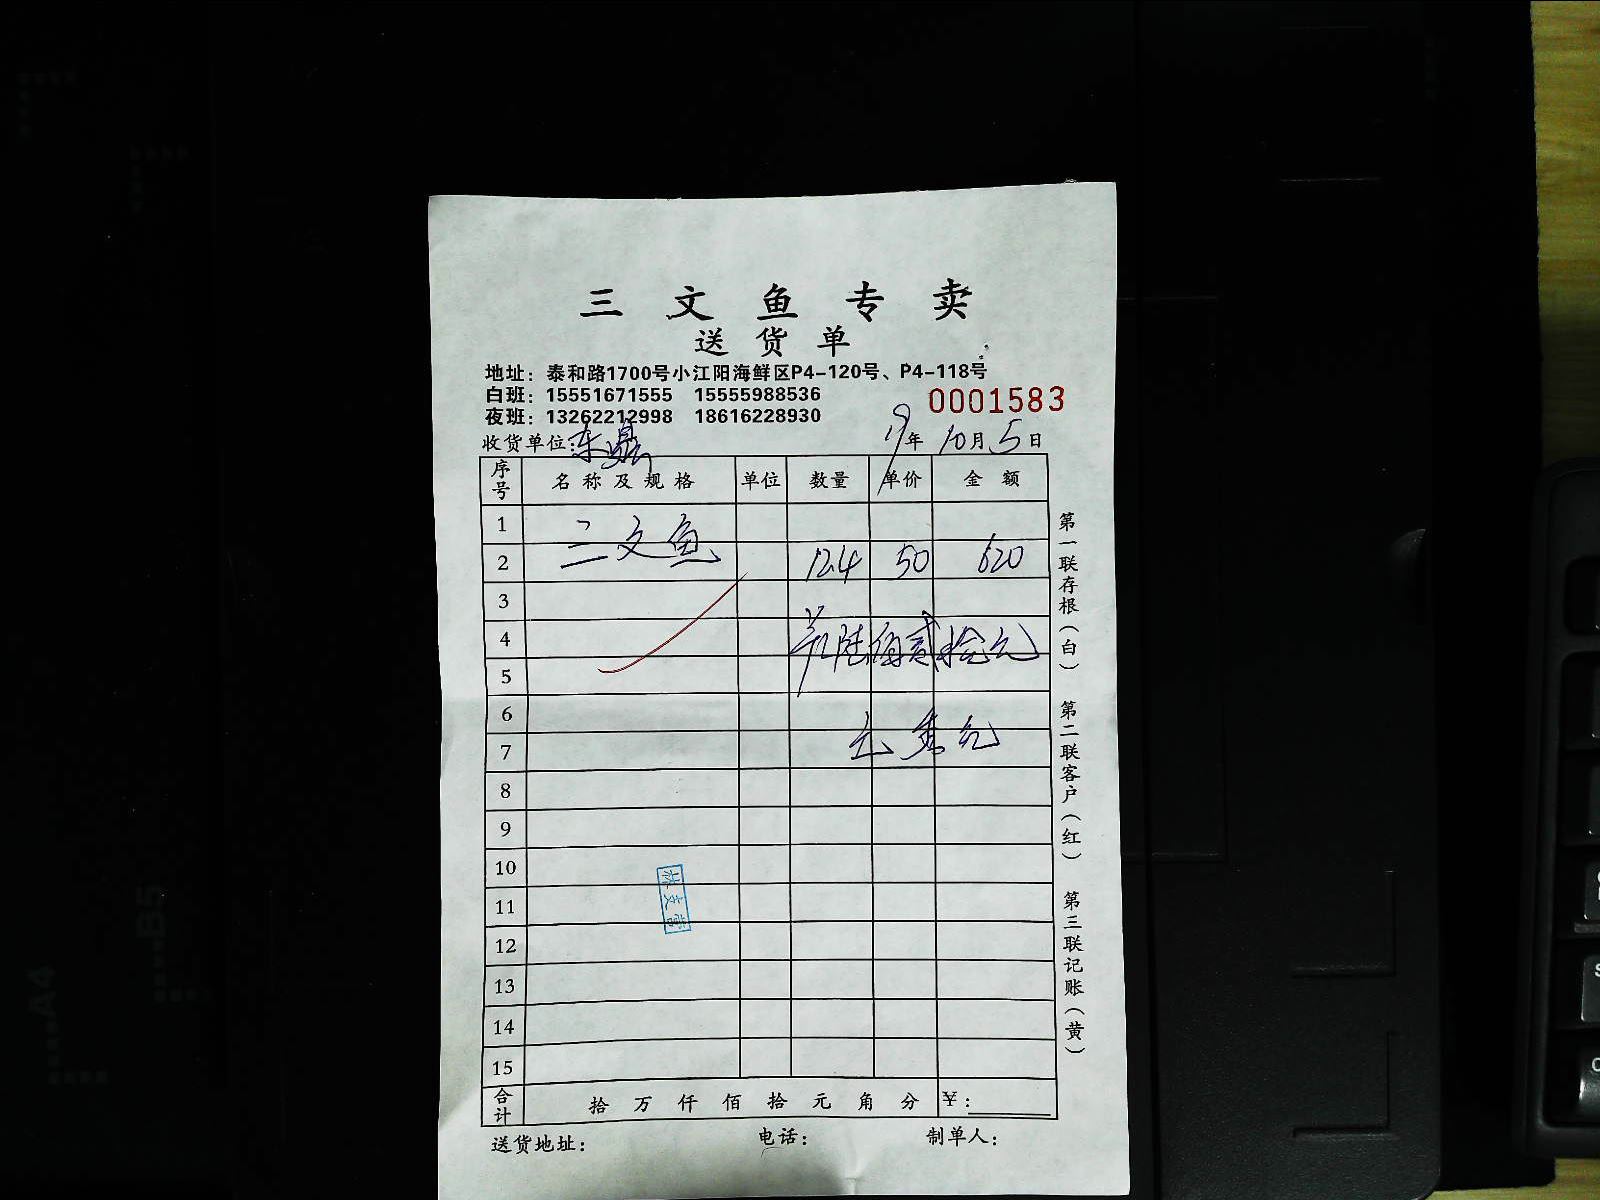 三文鱼专卖
送货单
地址：泰和路1700号小江阳海鲜区P4-120号、P4-118号
白班：15551671555 15555988536
0001583
夜班：13262212998 18616228930
收货单位：东鼎 19年10月5日
序号 名称及规格 单位 数量 单价 金额
1
三文鱼
2 12.4 50 620
3
4 陆佰贰拾元
5
6
7
8
9
10
11
12
13
14
15
合计 拾 万 仟 佰 拾 元 角 分 ￥：
送货地址： 电话： 制单人：
第一联存根（白）
第二联客户（红）
第三联记账（黄）
A4
B5